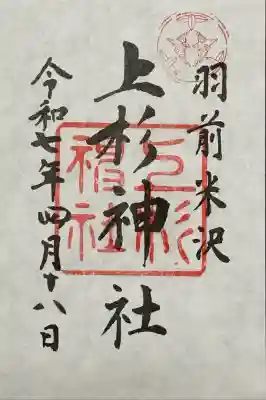 羽前米沢
上杉神社
上杉神社
令和七年四月十八日